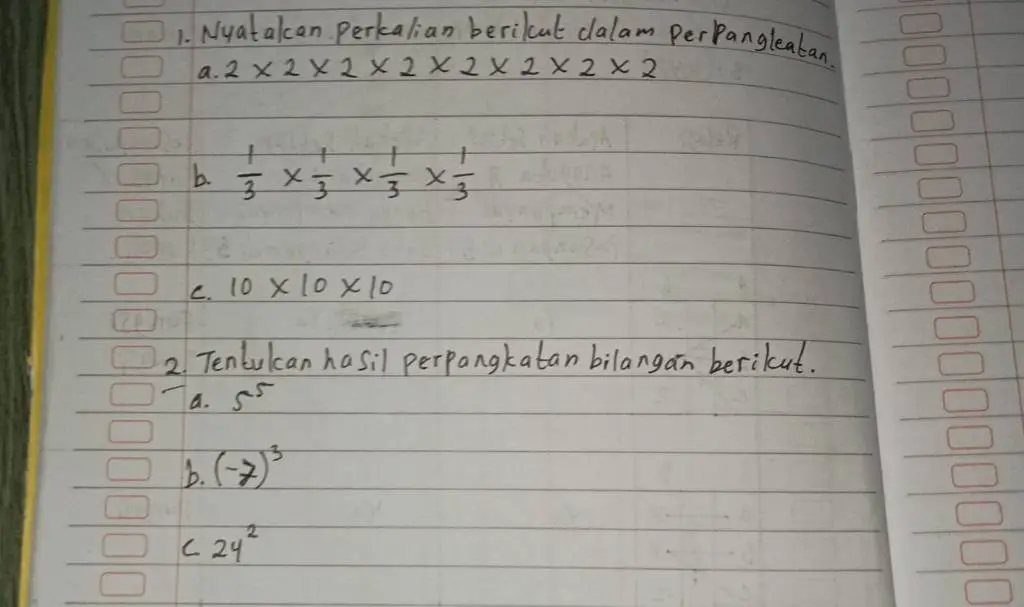 1. Nyatakan perkalian berikut dalam perpangkatan.
a. 2 × 2 × 2 × 2 × 2 × 2 × 2 × 2
b. 1/3 × 1/3 × 1/3 × 1/3
c. 10 × 10 × 10
2. Tentukan hasil perpangkatan bilangan berikut.
a. 5⁵
b. (-7)³
c 24²